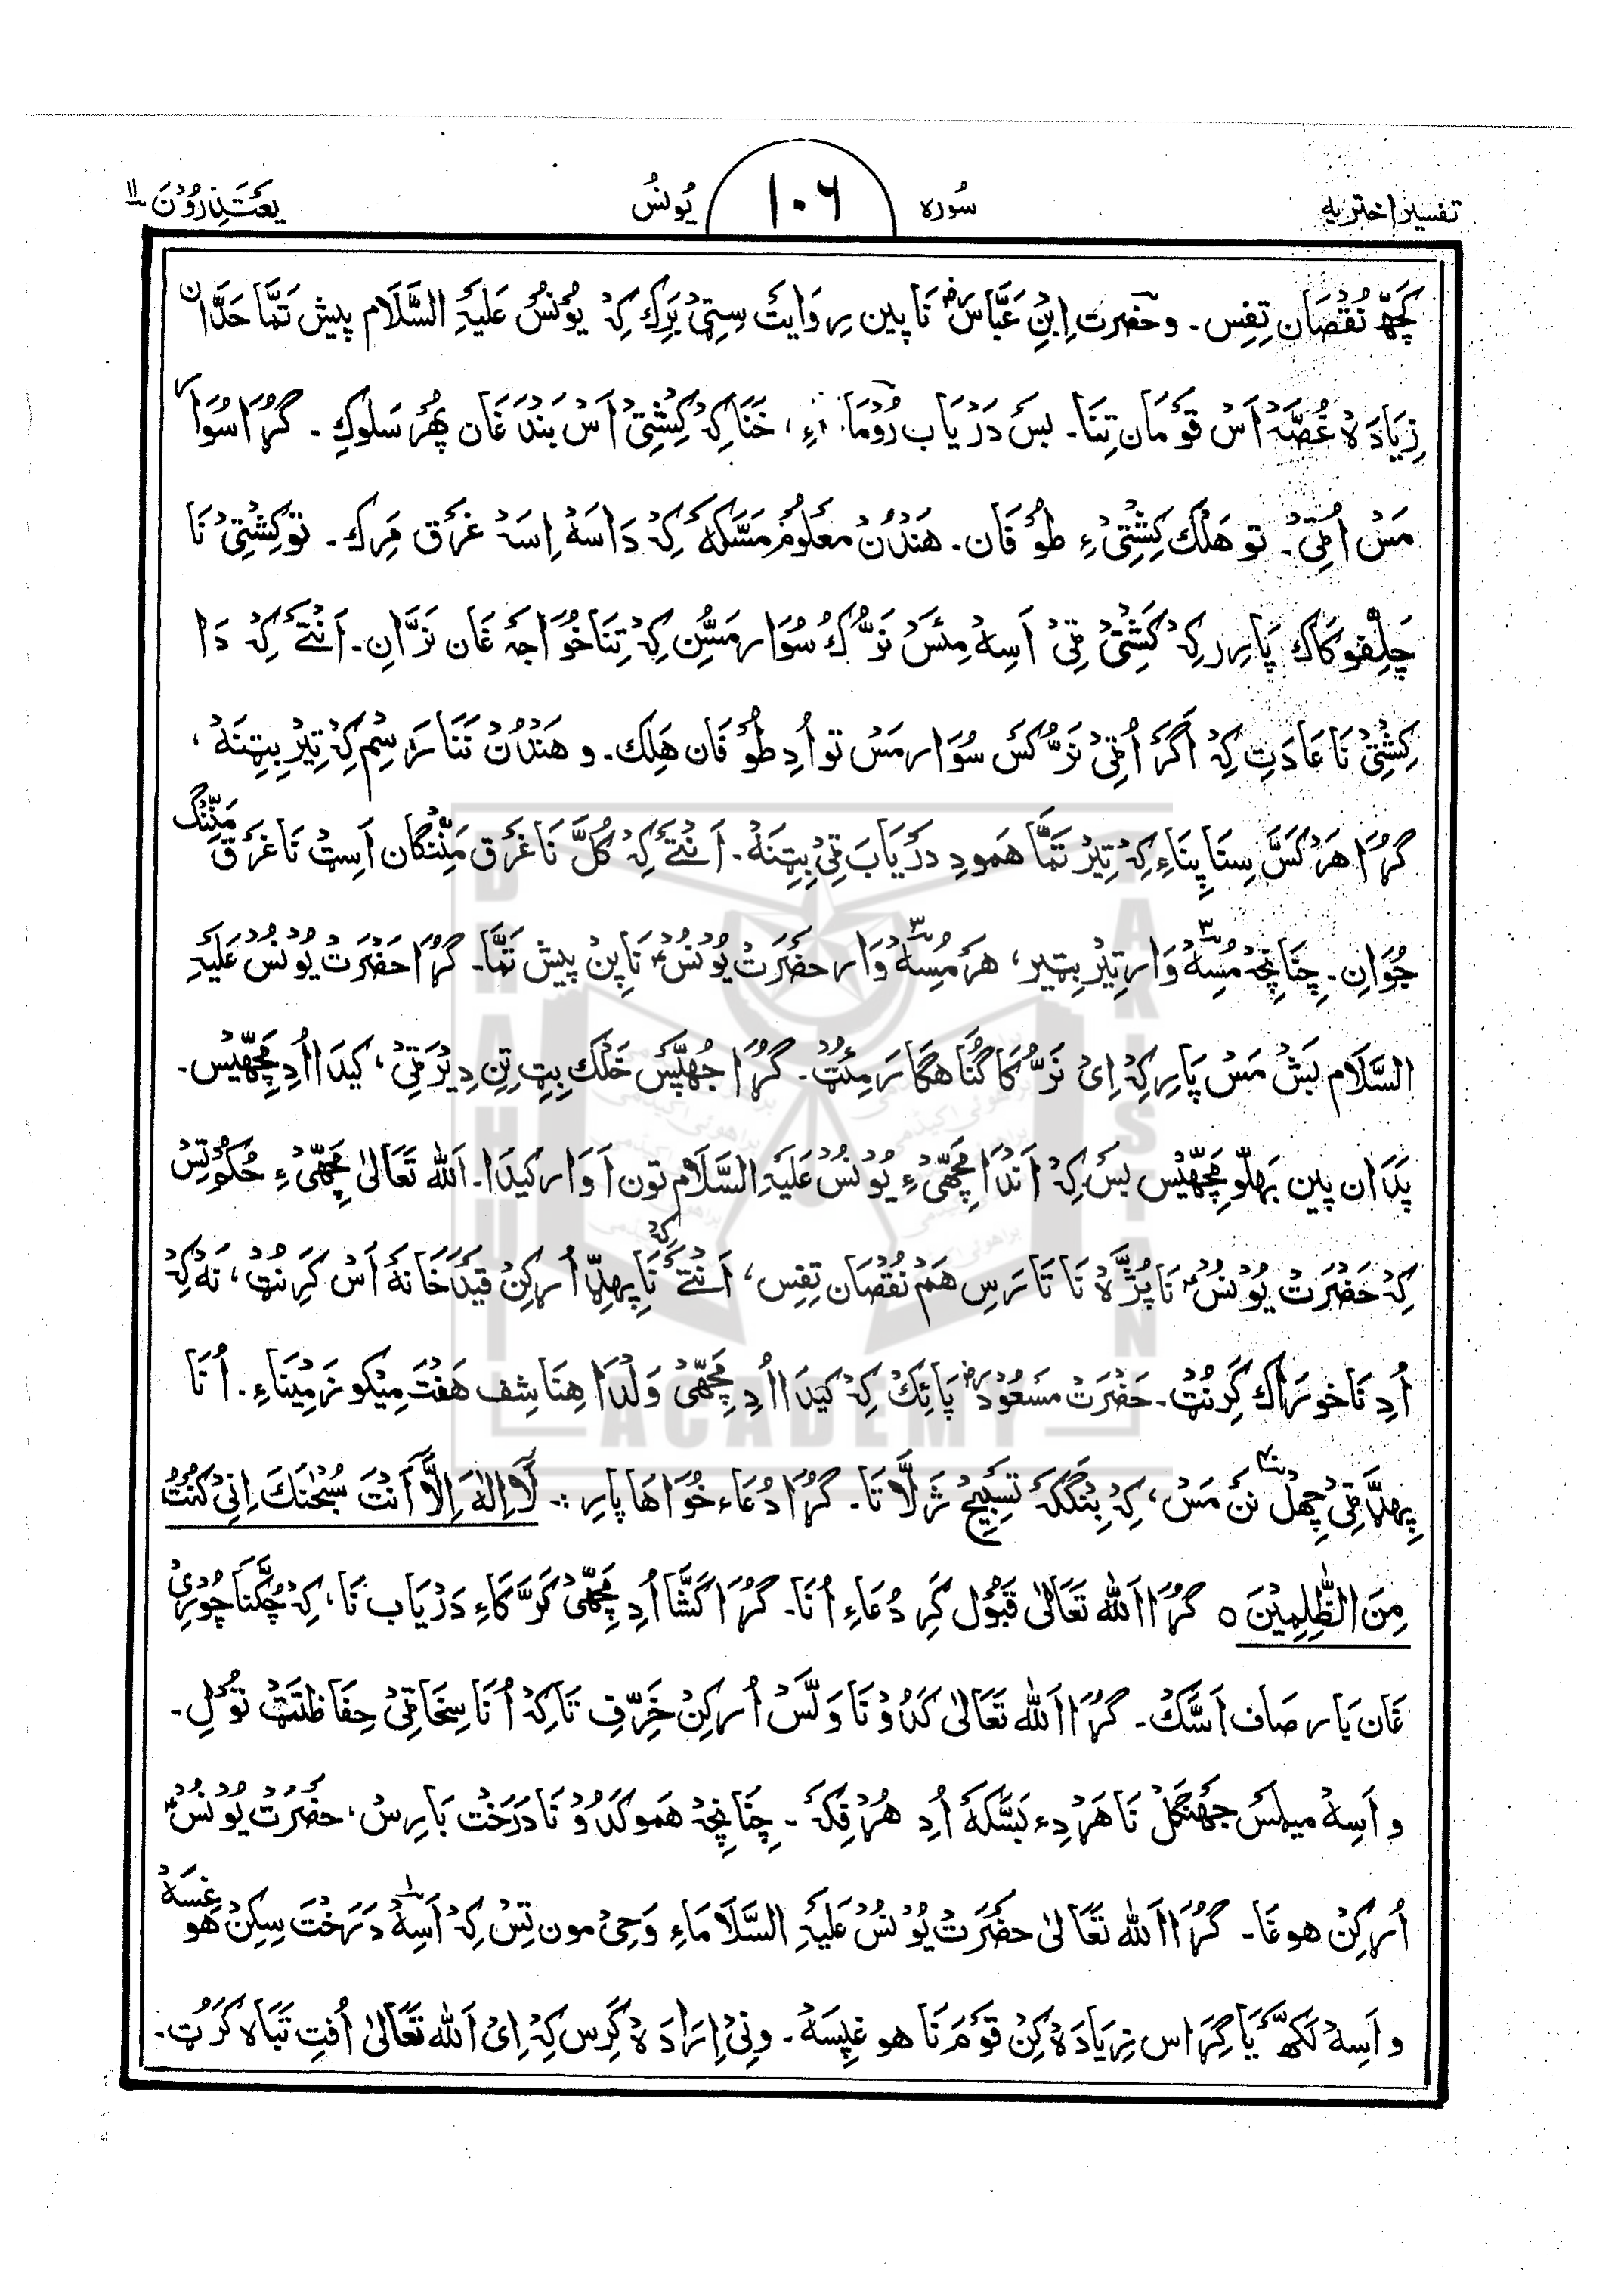 تفسیر اختریه سُورہ ١٠٦ یُونسُ یَعتَذِرُوْنَ ١١
کَچّھ نُقْصَان تِفِس۔ وحضرت اِبنِ عَبَّاسؓ نَا پین رِوَایتَ سِتیْ بَرِک کِہ یُوْنسُ عَلَیْہِ السَّلَام پیش تَمَّا حَدَّان
زِیَادَہ غُصَّہ اَسْ قَوْمَان تِنَا۔ بسَ دَرْیَاب رُوْمَا ءِ، خَنَا کِہ کِشْتِیْ اَسْ بَنْدَغَان پُھر سَلوکِ۔ گُڑَا سُوَار
مَسْ اُٹِیْ۔ تو ھَلْک کِشْتِیْ ءِ طُوْفَان۔ ھَنْدُنْ مَعلُوْم مَسَّکَہ کِہ دَاسَہْ اِسَہْ غَرَق مَرِک۔ تو کِشْتِیْ نَا
چَلِّفوکَاک پَارِر کِہ کَشْتِیْ ٹِیْ اَسِہْ مِئسْ نَرُّکْ سُوَار مَسُّنِ کِہ تِنَا خُوَاجَہ غَان نَرَّانِ۔ اَنْتےَ کِہ دَا
کِشْتِیْ نَا عَادَتِ کِہ اَگَرْ اُٹِیْ نَرُّکسْ سُوَار مَسْ تو اُدِ طُوْفَان ھَلِک۔ و ھَنْدُنْ نَنَا رَسِم کِہ تِیْر بِٹِنَہْ،
گُڑَا ھَرْکَسَّ سِتَا پِنَاءِ کِہ تِیْر تَمَّا ھَمودِ دَرْیَابَ ٹِیْ بِٹِنَہْ۔ اَنْتےَ کِہ کُلَّ نَا غَرَق مَنِّنْگَان اَسِٹ نَا غَرَق مَنِّنْگ
جُوَانِ۔ چِنَانِچِہْ مُسِہْ ٣ وَار تِیْر بِٹِیر، ھَر مُسِہْ ٣ وَار حضرَتْ یُوْنُسْؑ نَا پِنْ پیش تَمَّا۔ گُڑَا حَضْرَتْ یُوْنُسْ عَلَیْہِ
السَّلَام بَشْ مَسْ پَارِ کِہ اِیْ نَرُّکَا گُنَاھگَار مِئٹْ۔ گُڑَا جُھلِّپَسْ خَلْک بِٹِ تِنِ دِیْرَ ٹِیْ، کیَدَا اُدِ مَچّھیْس۔
پَدَان پین بَھلّو مَچّھیْس بَسْ کِہ اَنْدَا مَچّھیْ ءِ یُوْنُسْ عَلَیْہِ السَّلَام تون اَوَار کیَدَا۔ اَللہ تَعَالیٰ مَچّھیْ ءِ حُکم تِسْ
کِہ حَضْرَتْ یُوْنُسْؑ نَا پُڑَّہْ نَا تَارَسِ ھَمْ نُقْصَان تِفِس، اَنْتےَ کِہ نَا پِھلّا اُرکِنْ قیدَخَانَہ اَسْ کَرِنُٹ، نَہ کِہ
اُدِ نَا خورَاک کَرِنُٹ۔ حَضْرَتْ مَسْعُوْدؓ پَائِک کِہ کیَدَا اُدِ مَچّھیْ وَلْدَا ھِنَا شِف ھَفْتَ مِیْکو زَمِیْنَاءِ۔ اُنَا
پِھلّا ٹِیْ چِھل ٤٠ نَنْ مَسْ، کِہ بِنْگَکہ تَسْبِیْح ژَلّا تَا۔ گُڑَا دُعَاء خُوَاھَا پَارِ :۔ لَآ اِلٰہَ اِلَّآ اَنْتَ سُبْحٰنَکَ اِنِّیْ کُنْتُ
مِنَ الظّٰلِمِیْنَ ٥ گُڑَا اَللہ تَعَالیٰ قَبُوْل کَرِ دُعَاءِ اُنَا۔ گُڑَا کَشَّا اُدِ مَچّھیْ کَرَّکَاءِ دَرْیَاب نَا، کِہ چُکّنَا چُوْرِیْ
غَان یَار صَاف اَسَّک۔ گُڑَا اَللہ تَعَالیٰ کَدُوْ نَا وَلَّسْ اُرکِنْ خَرِّفِ تَاکِہ اُنَا سِخَا ٹِیْ حِفَاظَتَٹْ تُوْلِ۔
و اَسِہْ میلَسْ جَھنگَلْ نَا ھَرْدِء بَسَّکَہ اُدِ ھُرْفِکَہ۔ چِنَانِچِہْ ھَمو کَدُوْ نَا دَرَخْت بَارِس، حضرَتْ یُوْنُسْؑ
اُرکِنْ ھوغَا۔ گُڑَا اَللہ تَعَالیٰ حضرَتْ یُوْنُسْ عَلَیْہِ السَّلَامَاءِ وَحِیْ مون تِسْ کِہ اَسِہْ ١ دَرَخْتَ سِکِنْ ھوغِسَہ
و اَسِہْ لَکھّ یَا گِرَاس زِیَادَہْ کِنْ قَوْمَ نَا ھو غِپسَہْ۔ و نِیْ اِرَادَہْ کَرِس کِہ اِیْ اَللہ تَعَالیٰ اُفتِ تَبَاہ کَرُٹ۔
BRAHUI ACADEMY PAKISTAN